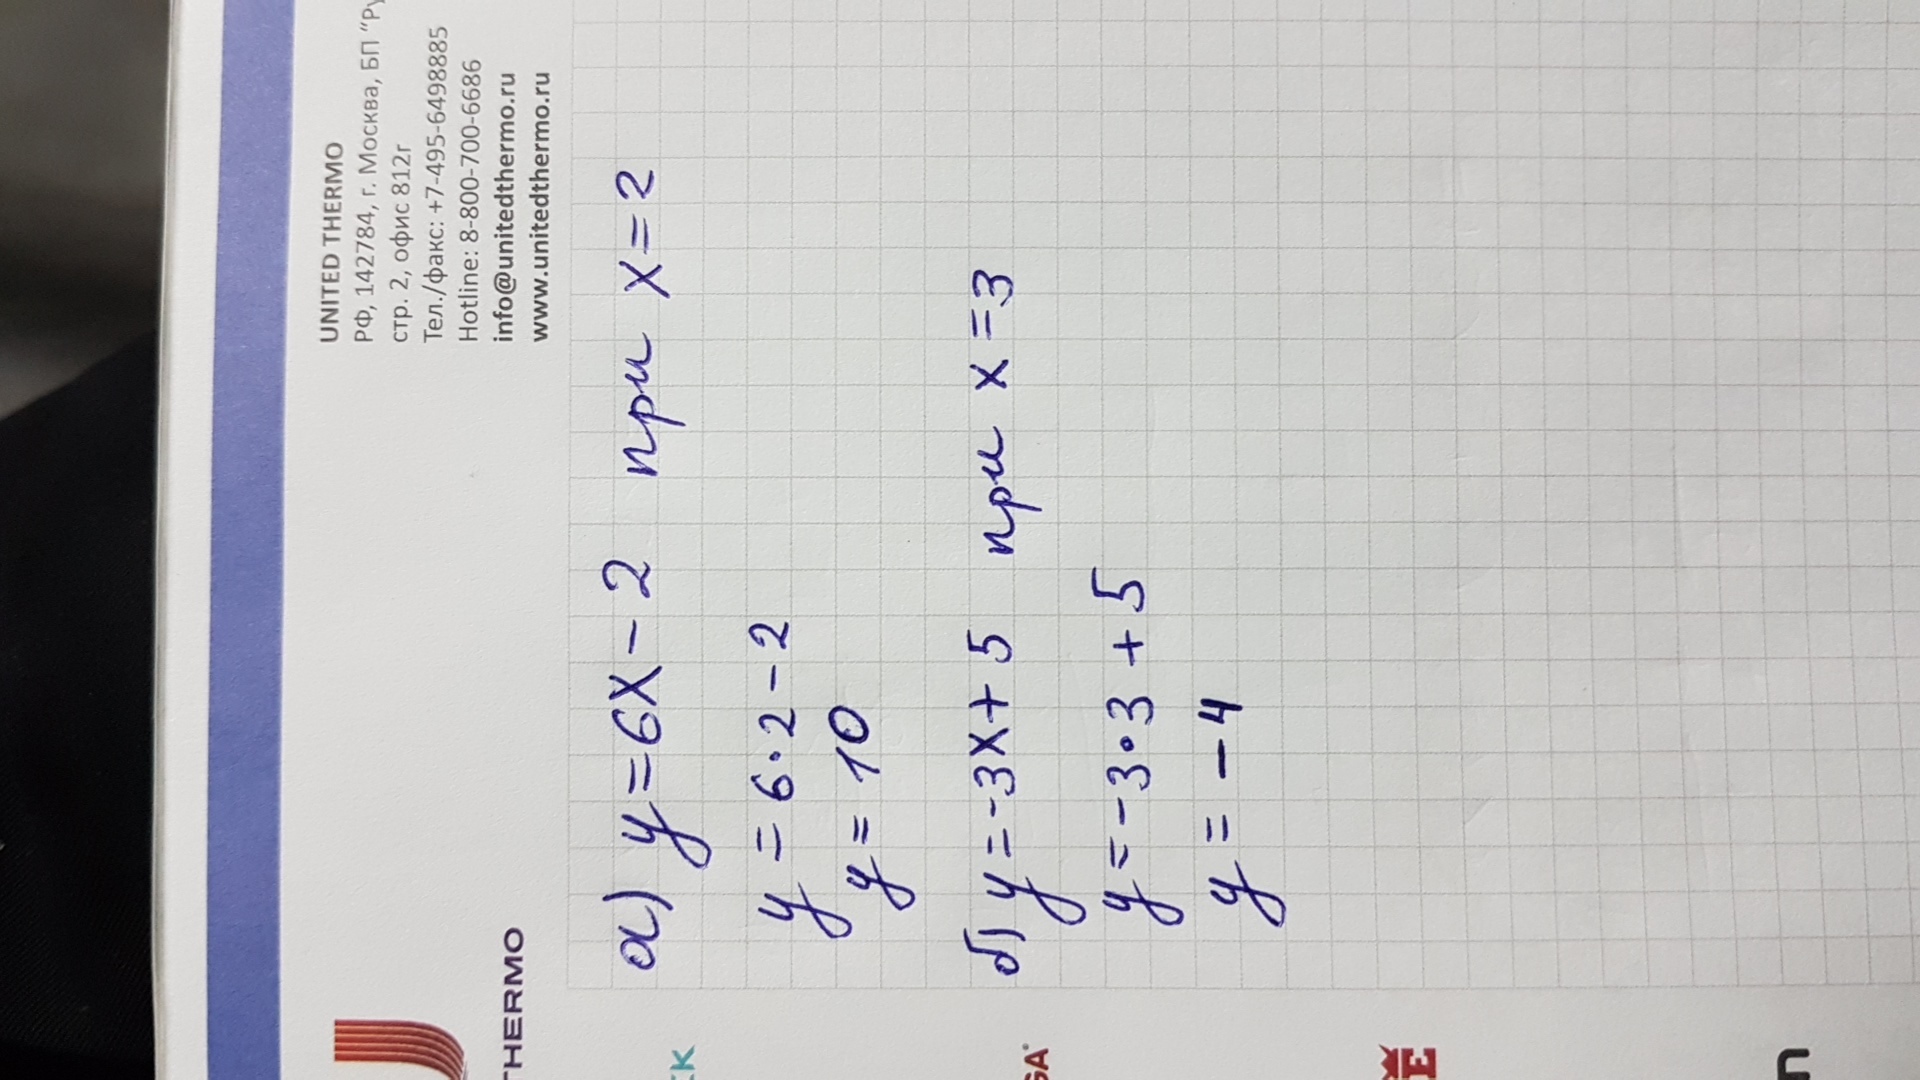 UNITED THERMO
РФ, 142784, г. Москва, БП "Ру
стр. 2, офис 812г
Тел./факс: +7-495-6498885
Hotline: 8-800-700-6686
info@unitedthermo.ru
www.unitedthermo.ru
THERMO
а) y=6x-2 при x=2
y=6·2-2
y=10
б) y=-3x+5 при x=3
y=-3·3+5
y=-4